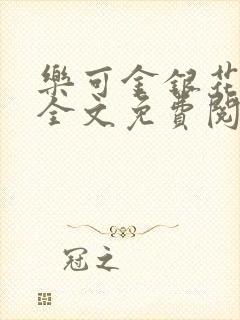 樂可金銀花
全文免費閱
冠之